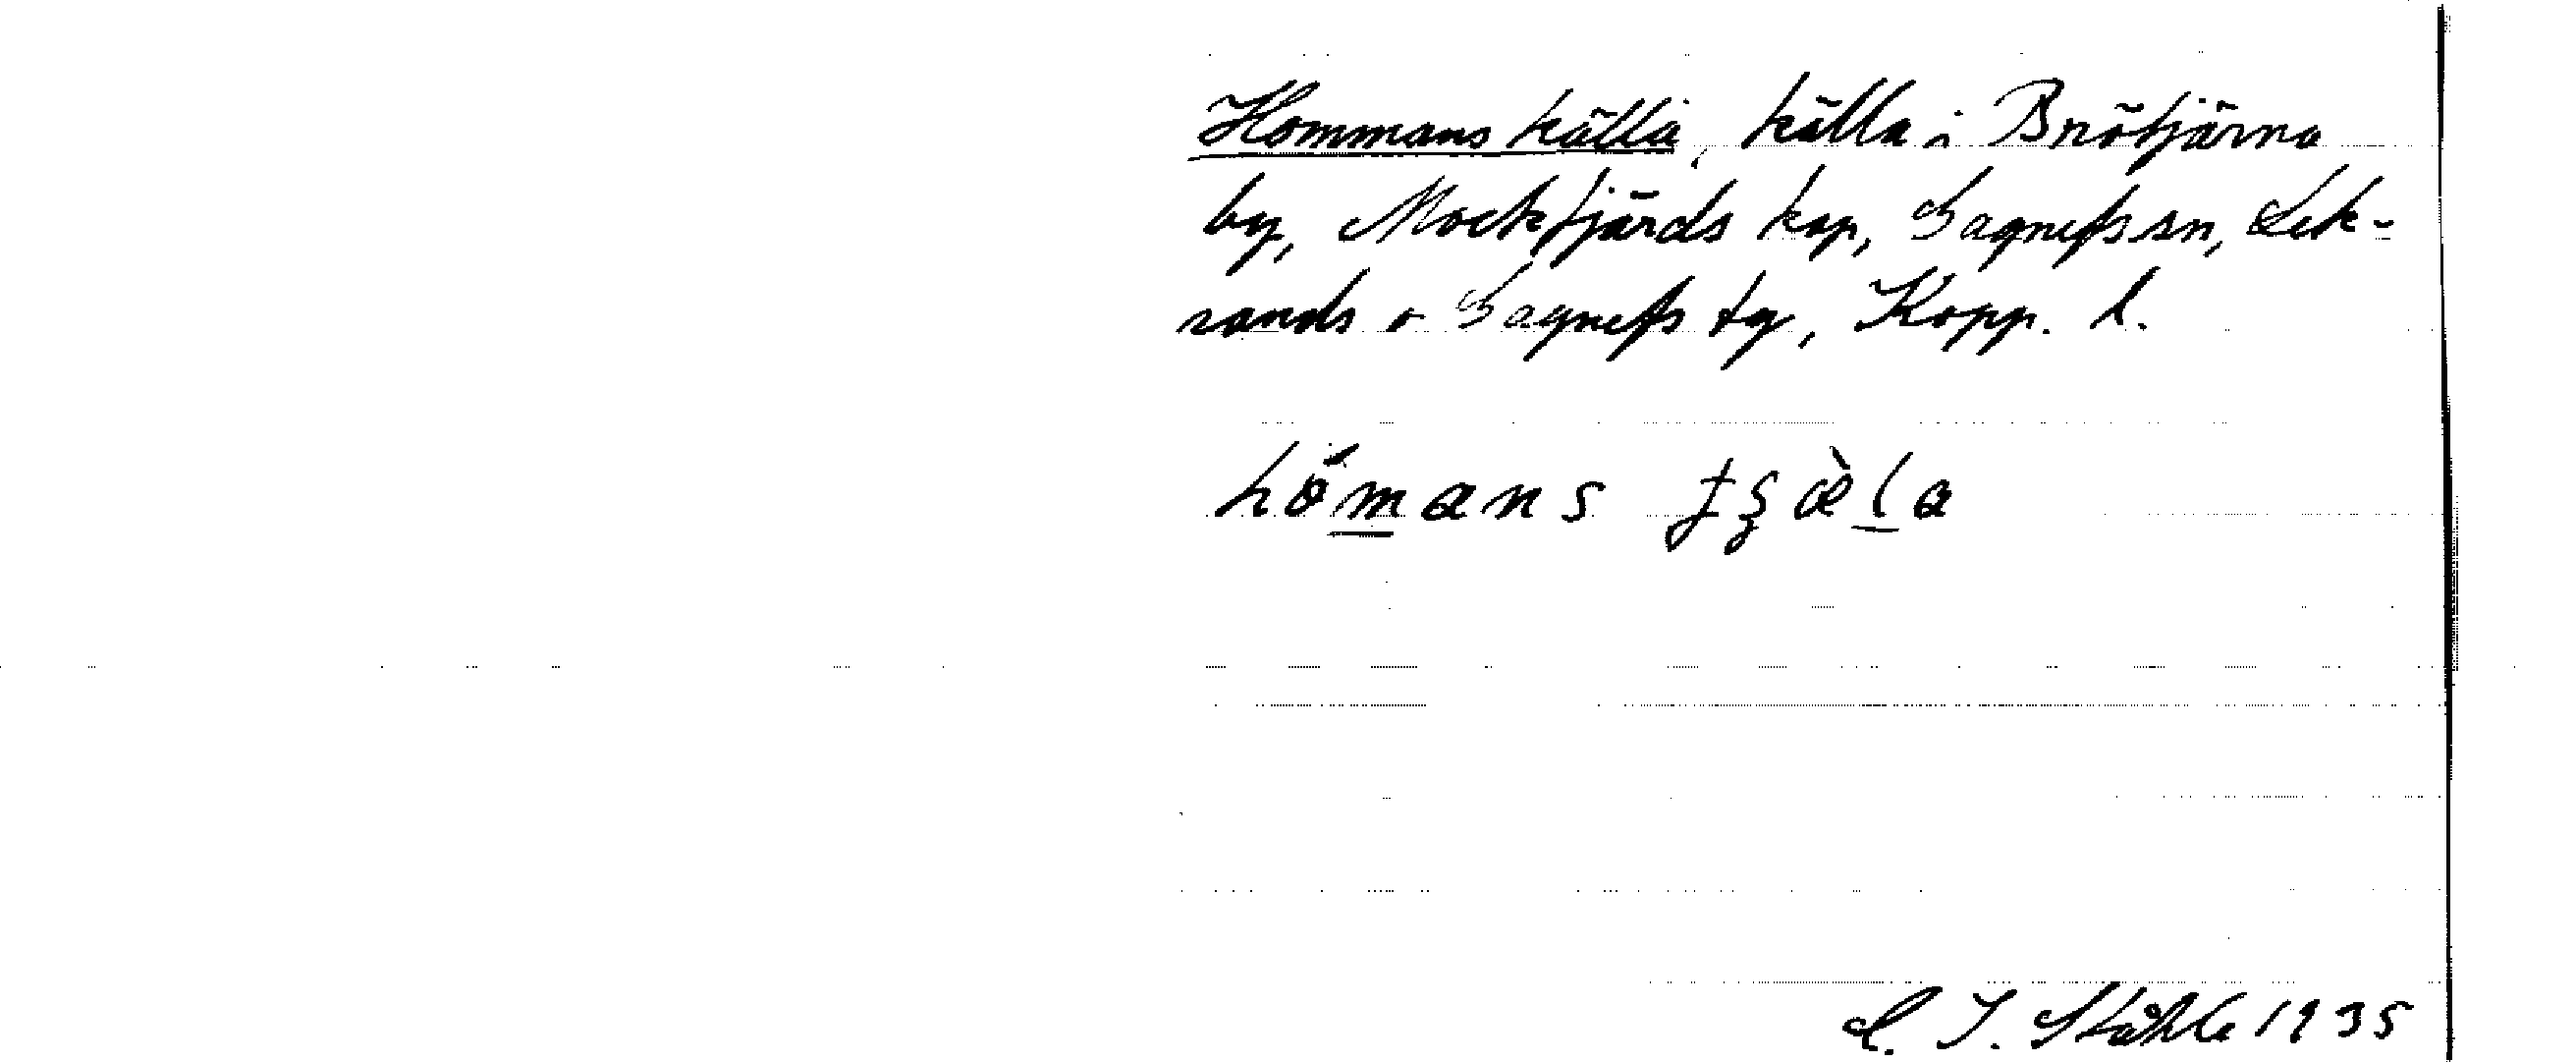 Hommans källa, källa i Brötjärna
by, Mockfjärds kap, Gagnefs sn, Lek-
sands o Gagnefs tg, Kopp. l.
hómans ʈʂæ̀la
C. I. Ståhle 1935